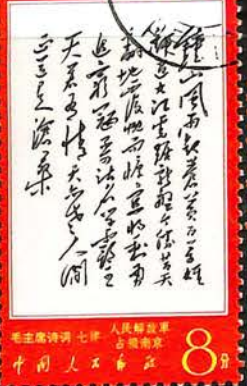 鍾山風雨起蒼黃百万雄
師過大江虎踞龍盤今勝昔天
翻地覆慨而慷宜將剩勇
追窮寇不可沽名學霸王
天若有情天亦老人间
正道是滄桑
毛主席诗词 七律 人民解放軍
占领南京
中国人民邮政
8分